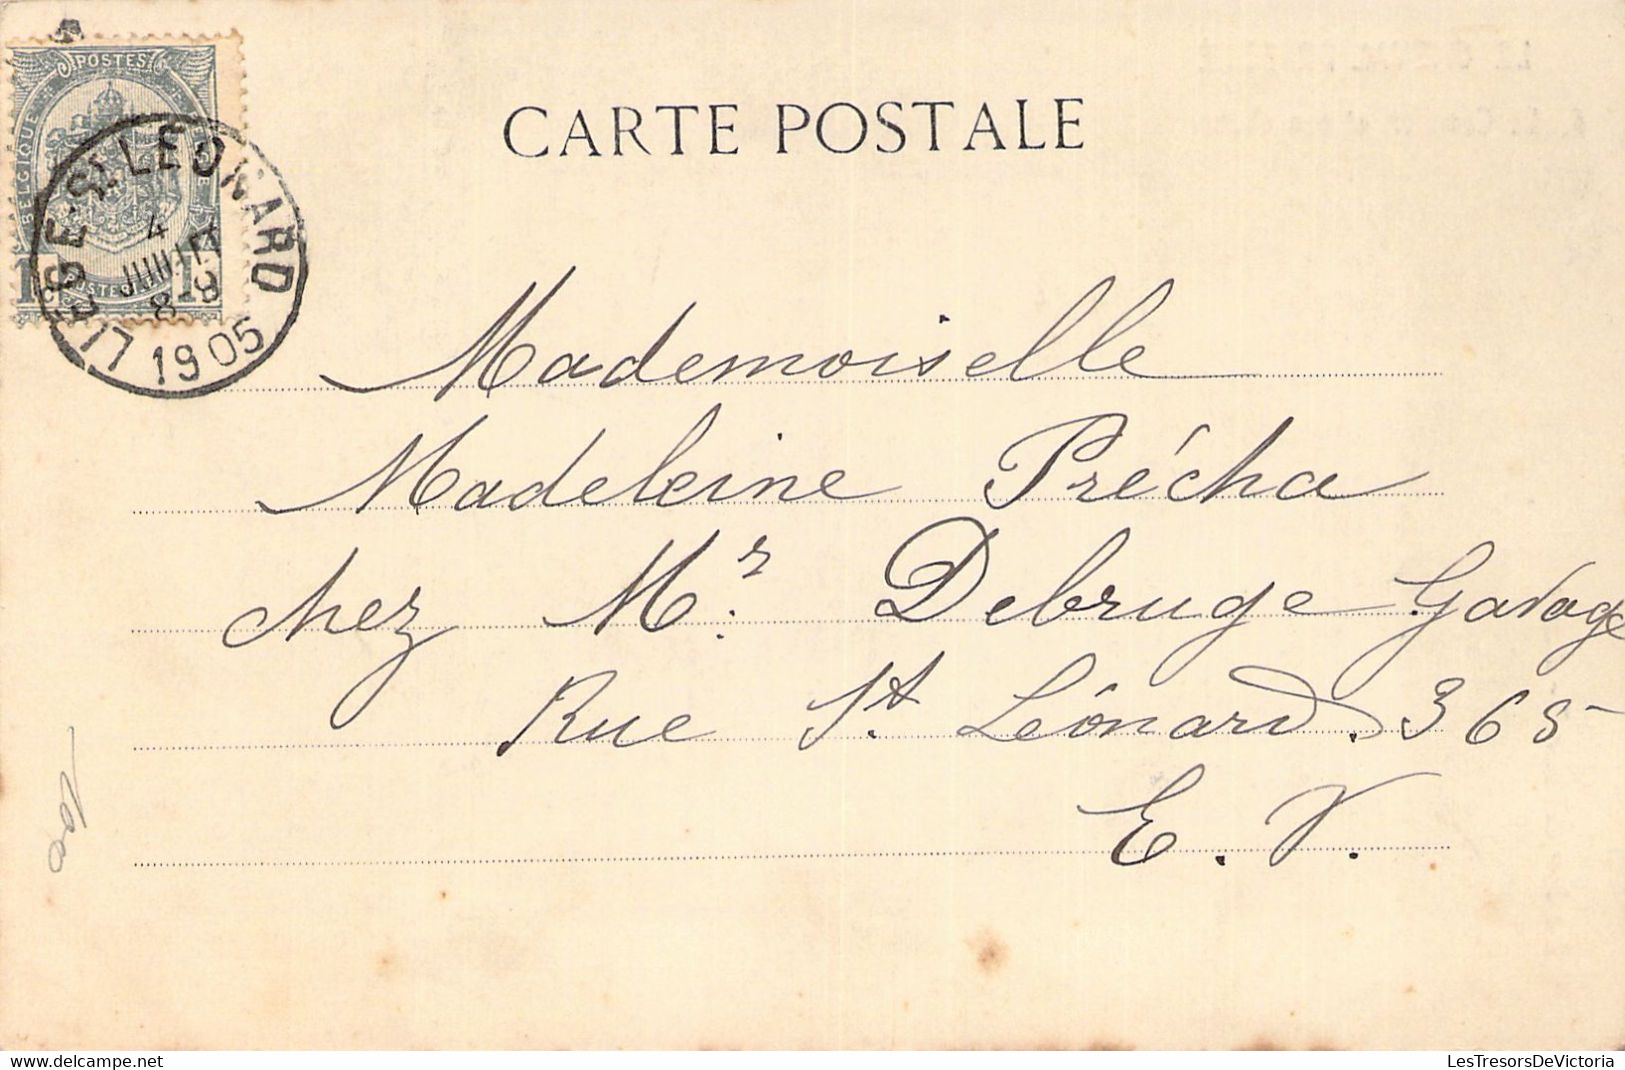 POSTES
BELGIQUE
1
POSTES
1
LIEGE-St LEONARD
4
JUILLET
8-9
1905
CARTE POSTALE
Mademoiselle
Madeleine Précha
chez Mr. Debruge Gavage
Rue St. Léonard. 365
E. V.
delcampe.net
LesTresorsDeVictoria